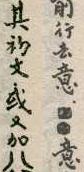 前行去意意
其初文或又加八